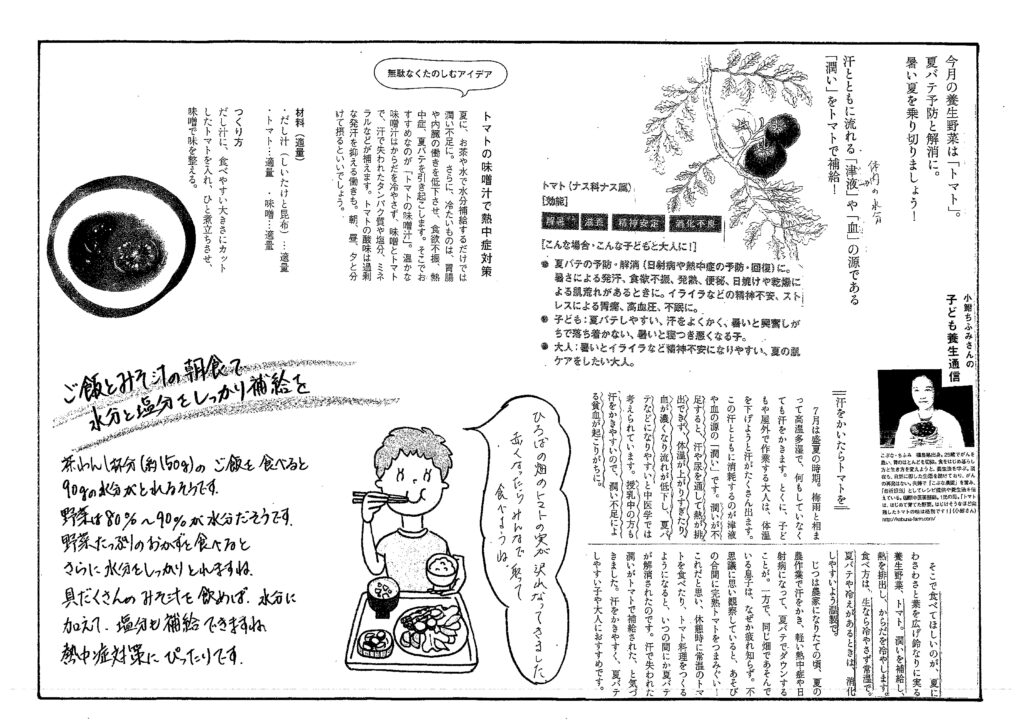 今月の養生野菜は「トマト」。
夏バテ予防と解消に。
暑い夏を乗り切りましょう！
汗とともに流れる「津液」や「血」の源である
「潤い」をトマトで補給！
体内の水分
小鮒ちふみさんの
子ども養生通信
トマト（ナス科ナス属）
[効能]
精神安定
消化不良
[こんな場合・こんな子どもと大人に！]
夏バテの予防・解消（日射病や熱中症の予防・回復）に。
暑さによる発汗、食欲不振、発熱、便秘、日焼けや乾燥に
よる肌荒れがあるときに。イライラなどの精神不安、スト
レスによる胃痛、高血圧、不眠に。
子ども：夏バテしやすい、汗をよくかく、暑いと興奮しが
ちで落ち着かない、暑いと寝つき悪くなる子。
大人：暑いとイライラなど精神不安になりやすい、夏の肌
ケアをしたい大人。
汗をかいたらトマトを
7月は盛夏の時期。梅雨と相ま
って高温多湿で、何もしていなく
ても汗をかきます。とくに、子ど
もや屋外で作業する大人は、体温
を下げようと汗がたくさん出ます。
この汗とともに消耗するのが津液
や血の源の「潤い」です。潤いが不
足すると、汗や尿を通して熱が排
出できず、体温が上がりすぎたり、
血が濃くなり流れが低下し、夏バ
テなどになりやすいと中医学では
考えられています。授乳中の方も
汗をかきやすいので、潤い不足によ
る貧血が起こりがち。
そこで食べてほしいのが、夏に
わさわさと葉を広げ鈴なりに実る
養生野菜、トマト。潤いを補給し、
熱を排出し、からだを冷やします。
食べ方は、生なら冷やさず常温で。
夏バテや冷えがあるときは、消化
しやすいよう温製で。
じつは農家になりたての頃、夏の
農作業で汗をかき、軽い熱中症や日
射病になって、夏バテでダウンする
ことが。一方で、同じ畑であそんで
いる息子は、なぜか疲れ知らず。不
思議に思い観察していると、あそび
の合間に完熟トマトをつまみぐい！
これだと思い、休憩時に常温のトマ
トを食べたり、トマト料理をつくる
ようになると、いつの間にか夏バテ
が解消されたのです。汗で失われた
潤いがトマトで補給された、と気づ
きました。汗をかきやすく、夏バテ
しやすい子や大人におすすめです。
無駄なくたのしむアイデア
トマトの味噌汁で熱中症対策
夏に、お茶や水で水分補給するだけでは
潤い不足に。さらに、冷たいものは、胃腸
や内臓の働きを低下させ、食欲不振、熱
中症、夏バテを引き起こします。そこでお
すすめなのが「トマトの味噌汁」。温かな
味噌汁はからだを冷やさず、味噌とトマト
で、汗で失われたタンパク質や塩分、ミネ
ラルなどが補えます。トマトの酸味は過剰
な発汗を抑える働きも。朝、昼、夕と分
けて摂るといいでしょう。
材料（適量）
・だし汁（しいたけと昆布）…適量
・トマト…適量　・味噌…適量
つくり方
だし汁に、食べやすい大きさにカット
したトマトを入れ、ひと煮立ちさせ、
味噌で味を整える。
ご飯とみそ汁の朝食で
水分と塩分をしっかり補給を
茶わん1杯分(約150g)の ご飯を食べると
90gの水分がとれるそうです。
野菜は80%〜90%が水分だそうです。
野菜たっぷりのおかずを食べると
さらに水分をしっかりとれますね。
具だくさんのみそ汁を飲めば、水分に
加えて、塩分も補給できますね
熱中症対策に ぴったりです。
ひろばの畑のトマトの実が沢山なってきました
赤くなったらみんなで取って
食べようね